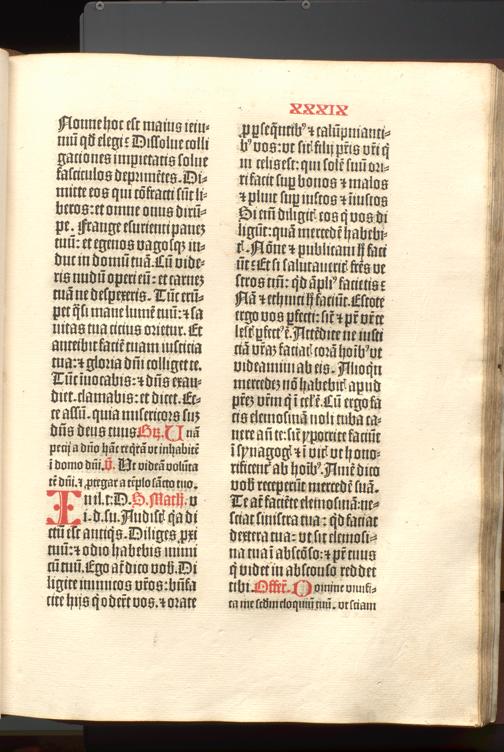 XXXIX
Nonne hoc est maius ieiu⸗
niū qd̄ elegi: Dissolue colli
gationes impietatis solue
fasciculos deprimētes. Di⸗
mitte eos qui cōfracti sūt li⸗
beros: et omne onus dirū⸗
pe. Frange esurienti panez
tuū: et egenos vagosqz in⸗
duc in domū tuā. Cū vide⸗
ris nudū operi eū: et carnez
tuā ne despexeris. Tūc erū⸗
pet q̄si mane lumē tuū: ⁊ sa
nitas tua citius orietur. Et
anteibit faciē tuam iusticia
tua: ⁊ gloria dn̄i colliget te.
Tūc īuocabis: ⁊ dn̄s exau⸗
diet. clamabis: et dicet. Ec⸗
ce assū. quia misericors suz
dn̄s deus tuus. Gr̄. Unā
petij a dn̄o hāc reqrā vt inhabitē
ī domo dn̄i. v̄. Ut videā volūta
tē dn̄i. ⁊ ptegar a tēplo sācto tuo.
In il. t. D. S. Math. v
i. d. su. Audist̄ qa di
ctū est antiqs. Diliges pxi
mū tuū: ⁊ odio habebis inimi
cū tuū. Ego aūt dico vob̄. Di
ligite inimicos vr̄os: bn̄fa
cite hijs q̄ oderūt vos. ⁊ orate
ꝓ ꝑseq̄ntibꝰ ⁊ calūpniānti⸗
bꝰ vos: vt sit̄ filij pr̄is vr̄i q̄
in celis est: qui solē suū ori⸗
ri facit suꝑ bonos ⁊ malos
⁊ pluit suꝑ iustos ⁊ īiustos
Si eni diligit̄ eos q̄ vos di
ligūt: quā mercedē habebi⸗
t̄. Nōne ⁊ publicani h̄ faci
ūt: Et si salutauerit̄ fr̄es ve
stros tm̄: qd āpliꝰ facietis:
Nā ⁊ ethnici h̄ faciūt. Estote
ergo vos ꝑfecti: sic̄ ⁊ pr̄ vr̄ ce
lest̄ ꝑfectꝰ ē. Attēdite ne iusti
ciā vr̄az faciat̄ corā hoībꝰ vt
videamini ab eis. Alioqn̄
mercedez nō habebit̄ apud
pr̄ez vr̄m q̄ ī cel̄ ē. Cū ergo fa
cis elemosinā noli tuba ca⸗
nere an̄ te: sic̄ ypocrite faciūt
ī synagoḡ ⁊ ī vic̄ vt hono⸗
rificent̄ ab hoībꝰ. Amē dico
vob̄ receperūt mercedē suā.
Te aūt faciēte elemosinā: ne⸗
sciat sinistra tua: qd faciat
dextera tua: vt sit elemosi⸗
na tua ī abscōso: ⁊ pr̄ tuus
q̄ videt in abscouso reddet
tibi. Offer̄. Domine viuifi⸗
ca me scdm eloquiū tuū. vt sciam